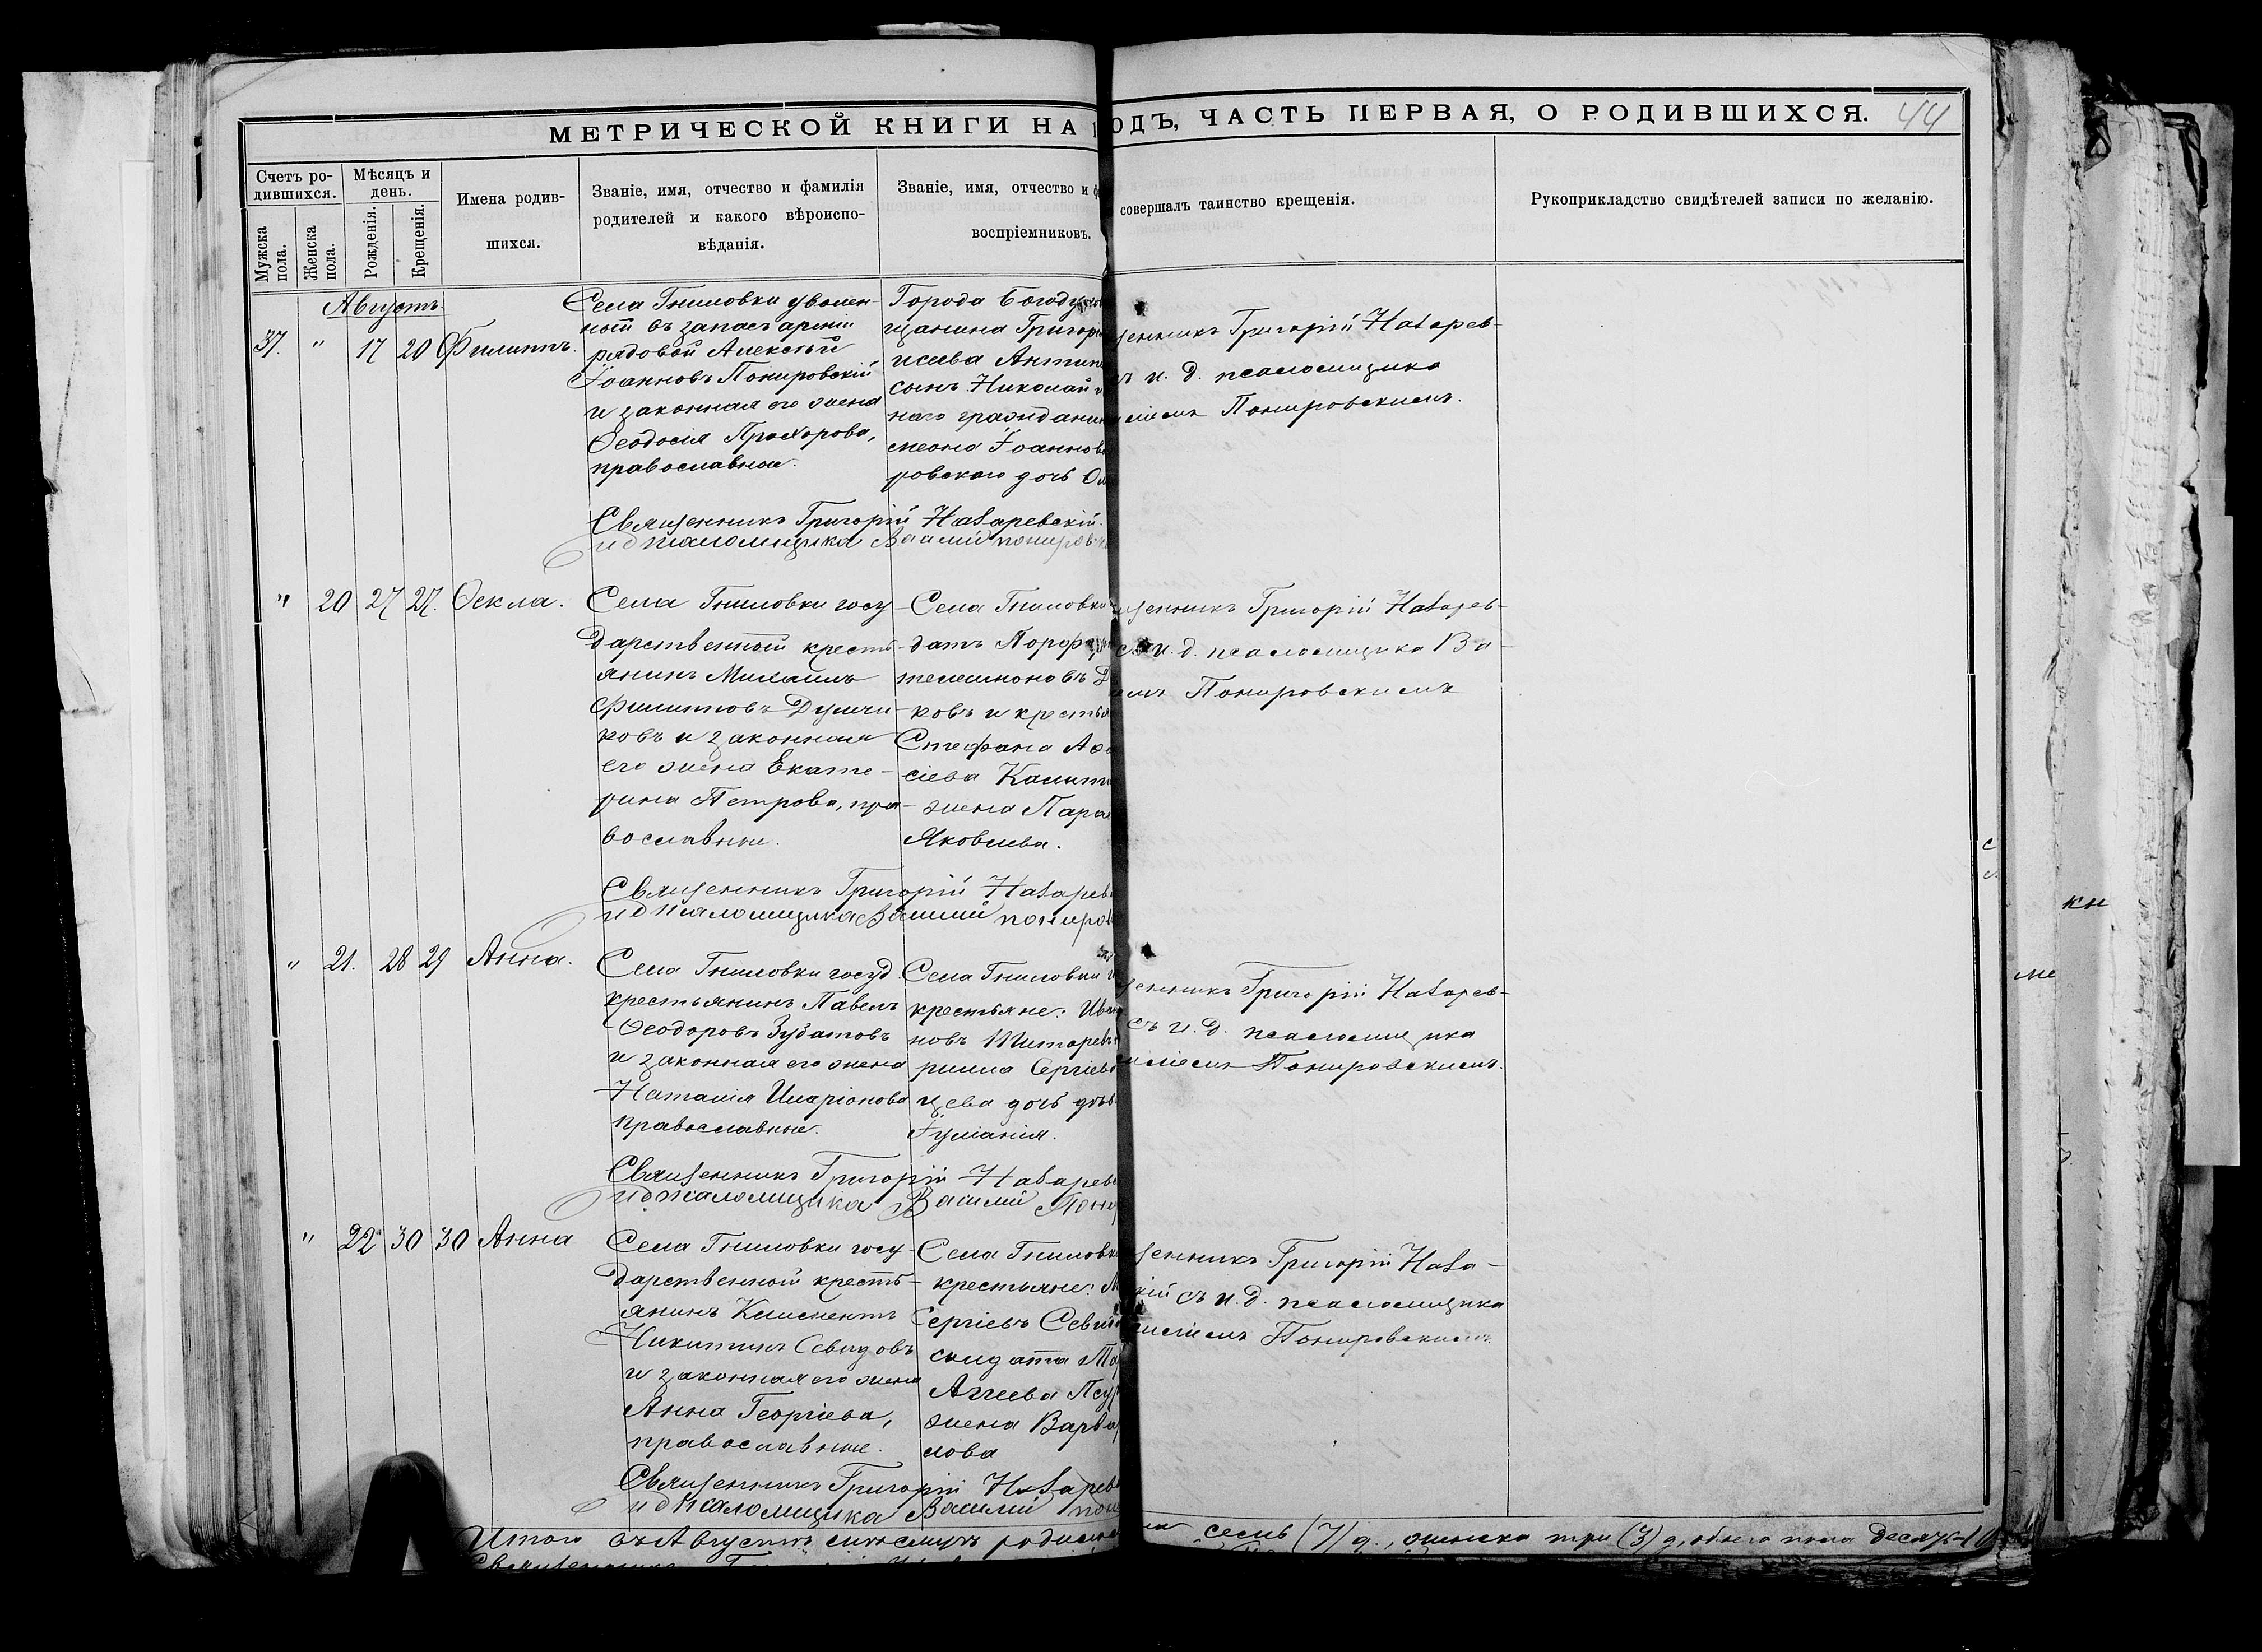 МЕТРИЧЕСКОЙ КНИГИ НА ГОДЪ, ЧАСТЬ ПЕРВАЯ, О РОДИВШИХСЯ. 44
Счетъ ро-
дившихся.
Мужска
пола.
Женска
пола.
Мѣсяцъ и
день.
Рожденія.
Крещенія.
Имена родив-
шихся.
Званіе, имя, отчество и фамилія
родителей и какого вѣроиспо-
вѣданія.
Званіе, имя, отчество и
воспріемниковъ.
совершалъ таинство крещенія.
Рукоприкладство свидѣтелей записи по желанію.
Августъ
37. " 17 20 Филиппъ.
Села Гниловки уволен-
ный въ запасъ арміи
рядовой Алексѣй
Іоанновъ Понировскій
и законная его жена
Ѳеодосія Прохорова,
православные.
Города Богодухо
щанина Григорі
исѣева Антип
сынъ Николай и
наго гражданин
меона Іоаннов
ровскаго дочь Ол
щенникъ Григорій Назарев-
ъ и. д. псаломщика
иліемъ Понировскимъ.
Священникъ Григорій Назаревскій.
и д псаломщика Василій Пониров
" 20 27 27. Ѳекла.
Села Гниловки госу-
дарственный кресть-
янинъ Михаилъ
Филипповъ Думчи-
ковъ и законная
его жена Екате-
рина Петрова, пра-
вославные.
Села Гниловки
датъ Порф
телеимоновъ Д
ковъ и крестья
Стефана А
сіева Калит
жена Пара
Яковлева.
щенникъ Григорій Назарев-
съ и. д. псаломщика Ва-
емъ Понировскимъ
Священникъ Григорій Назарев
и д псаломщика Василій Пониров
" 21. 28 29 Анна.
Села Гниловки госуд.
крестьянинъ Павелъ
Ѳеодоровъ Зубатовъ
и законная его жена
Наталія Иларіонова
православные.
Села Гниловки
крестьяне: Ив
новъ Титарев
рилла Сергіев
цева дочь дѣв
Іуліанія.
щенникъ Григорій Назарев-
съ и. д. псаломщика
иліемъ Понировскимъ.
Священникъ Григорій Назарев
и д псаломщика Василій Пони
" 22 30 30 Анна
Села Гниловки госу-
дарственный кресть-
янинъ Климентъ
Никитинъ Севидовъ
и законная его жена
Анна Георгіева,
православные.
Села Гниловк
крестьяне: М
Сергіевъ Севи
солдата Ма
Аггеева Псу
жена Варва
лова
щенникъ Григорій Наза-
кій съ и. д. псаломщика
силіемъ Понировскимъ.
Священникъ Григорій Назарев
и д псаломщика Василій Пон
Итого въ Августѣ мѣсяцѣ родилос
семь (7) д., женска три (3) д, обоего пола десять
кн
ме